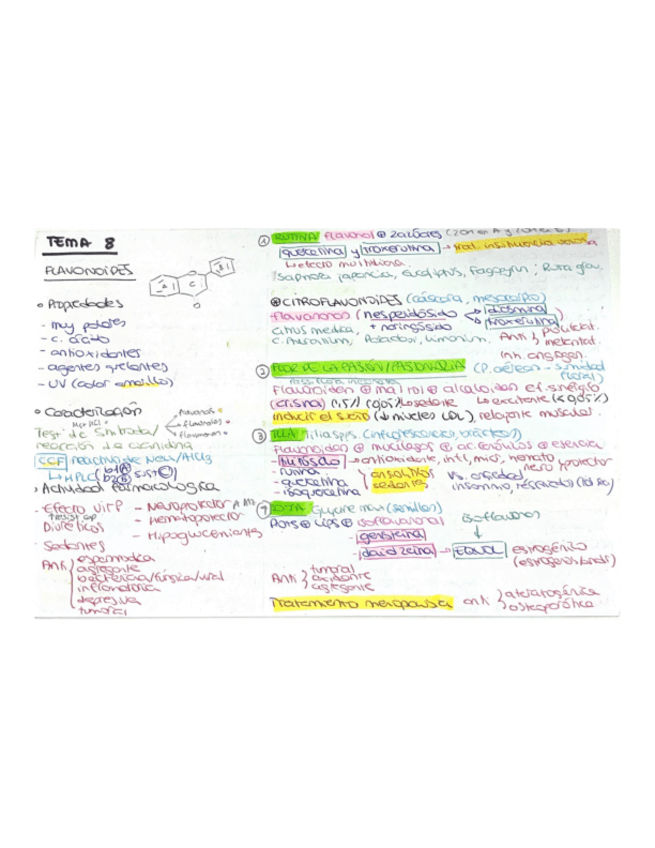 TEMA 8
FLAVONOIDES
A C B
O
Propiedades
- muy polares
- c. ácido
- antioxidantes
- agentes quelantes
- UV (color amarillo)
Caracterización
Mg+HCl
Flavonas
Flavonoles
Flavononas
Test de Shinoda/
reacción de cianidina
CCF reactivo de Neu/AlCl3
HPLC
Actividad farmacologica
- Efecto Vit P
↑resist cap
Diuréticos
- Sedantes
- Neuroprotector
- Hematoprotector
- Hipoglucemiantes
Anti
espasmódica
agregante
bacteriana/fúngica/viral
inflamatoria
depresiva
tumoral
① RUTINA flavonol ⊕ 2 azúcares
quercetina y troxerutina → trat. insuficiencia venosa
↳ efecto multidiana
Sophora japonica, eucaliptus, Fagopyrum, Ruta grav.
⊕ CITROFLAVONOIDES (cáscara, mesocarpio)
flavanonas (hesperidósido
diosmina
troxerutina
Citrus medica, + naringósido
C. Aurantium, limonium. Anti
metastat.
Inh. angiogen.
② FLOR DE LA PASIÓN/PASIONARIA (P. aérea - sumidad floral)
Passiflora incarnata
flavonoides ⊕ maltol ⊕ alcaloides ef. sinérgico
(crisina) (1,5%) (<0,05%) ↳ sedante ↳ excitante (<0,05%)
inducir el sueño (↓ niveles LDL), relajante muscular.
③ TILA Tilia spps. (inflorescencias, brácteas)
flavonoides ⊕ mucílagos ⊕ ac. fenólicos ⊕ esencia
- tilirósido → antioxidante, infl, micr, hemato,
neuro protector
- rutina
- quercetina
- isoquercetina
ansiolítico
sedante
vs. ansiedad
insomnio, resfriado
④ SOJA Glycine max (semillas)
Prots ⊕ Lips ⊕ isoflavonas
- genisteína
- daidzeína → EQUOL
isoflavonas
estrogénico
Anti
tumoral
oxidante
agregante
Tratamiento menopausia anti
aterogénica
osteoporótica